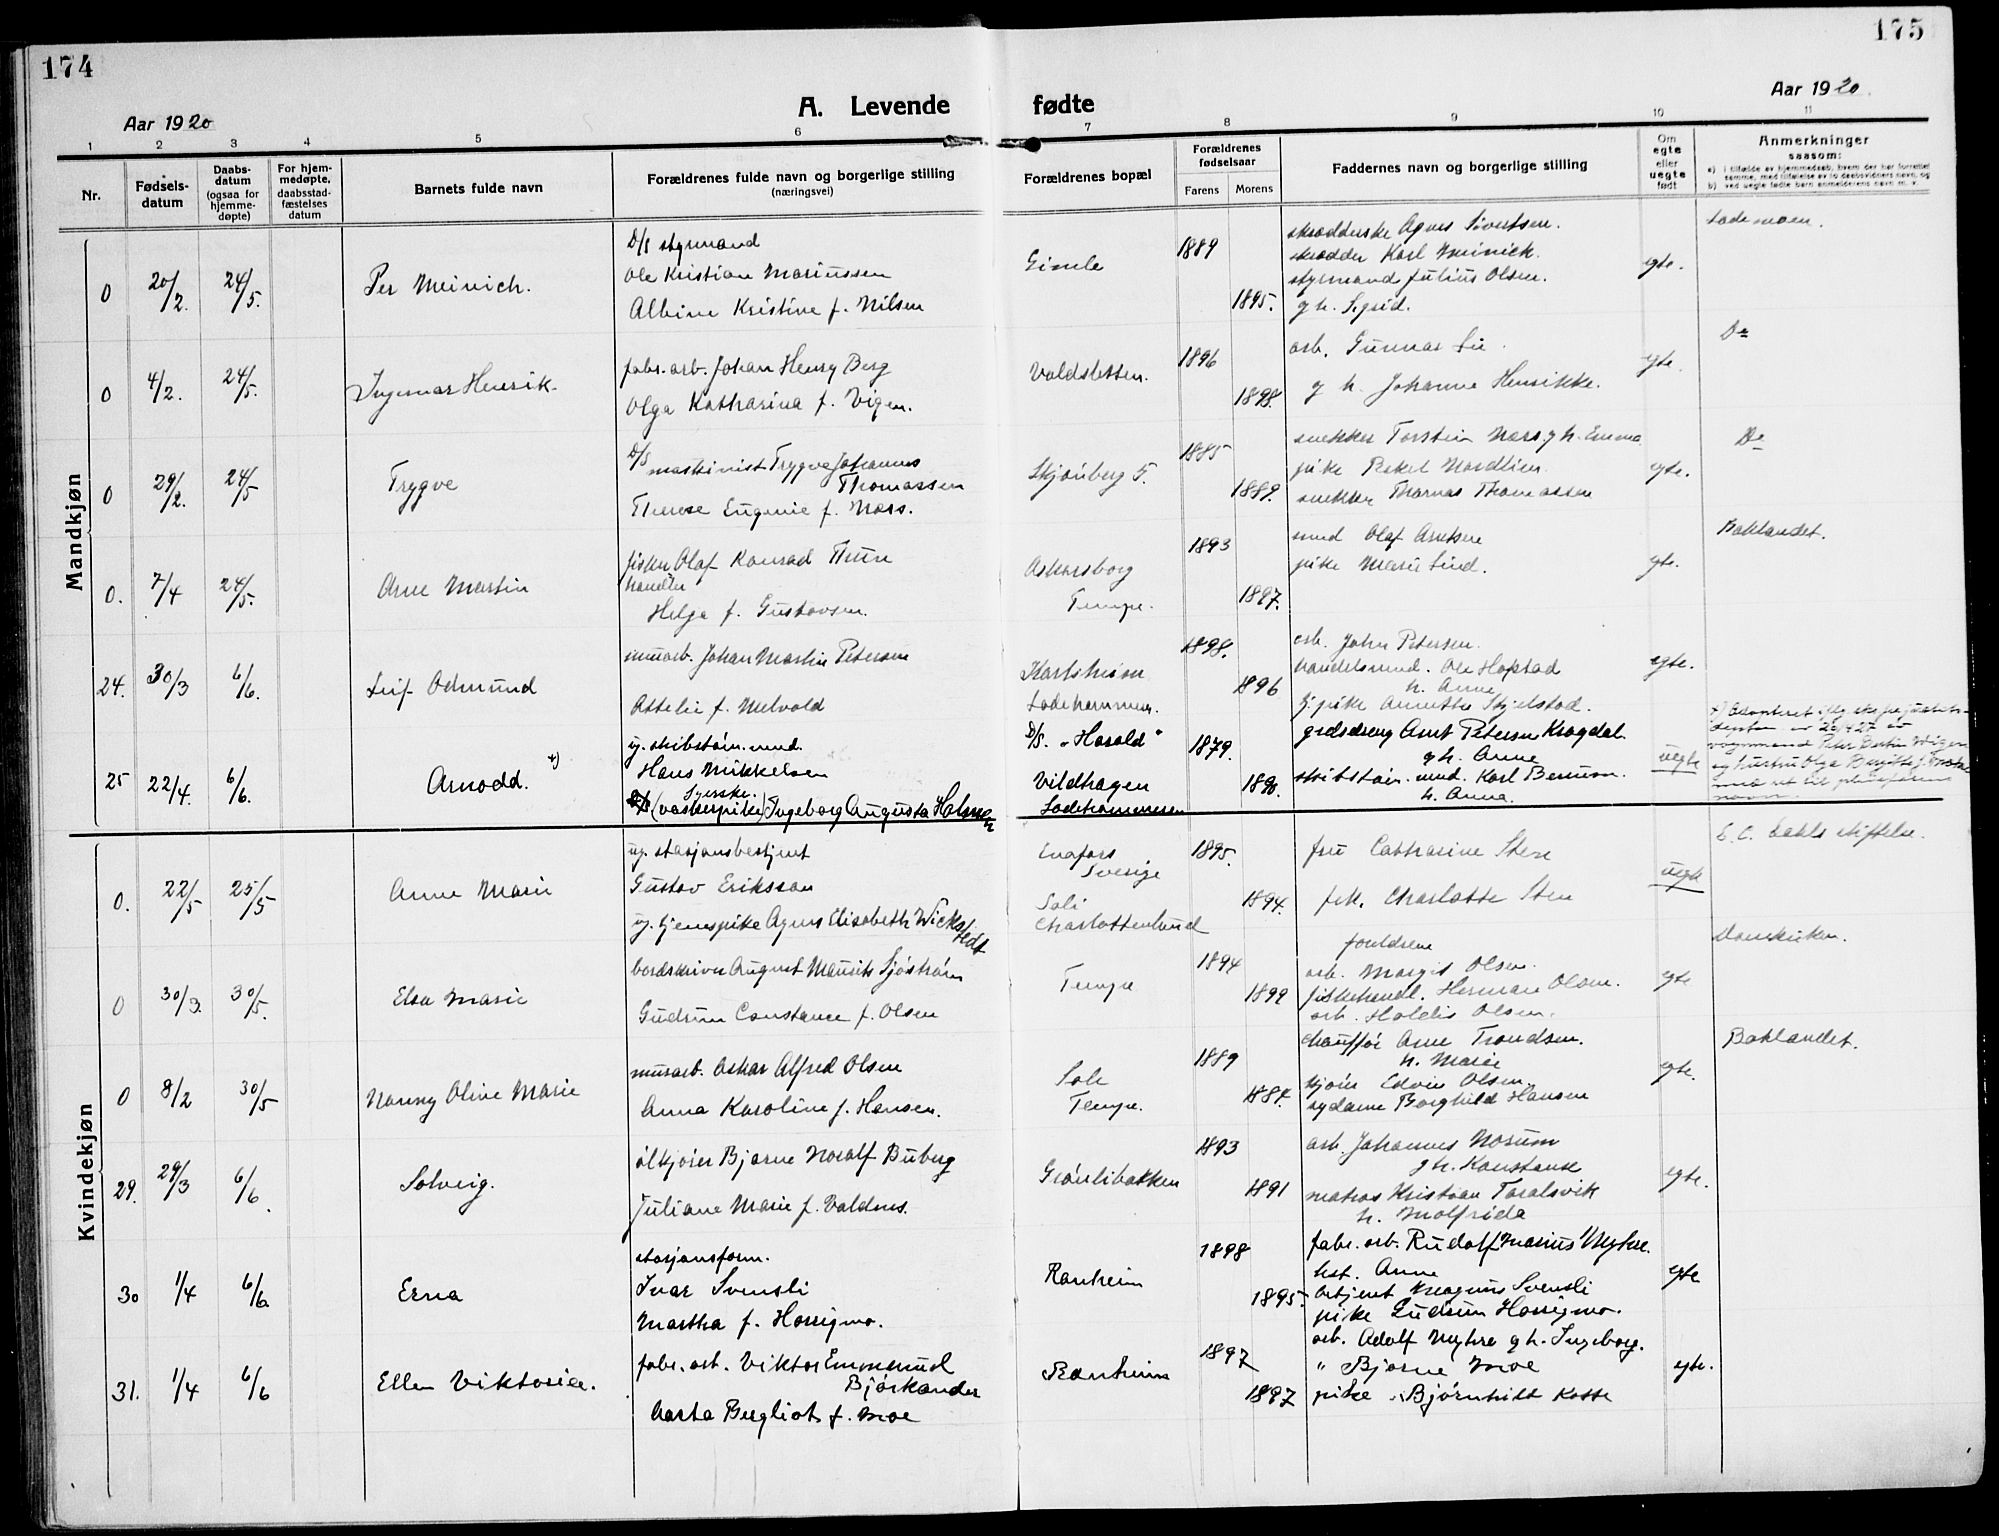 174
175
Aar 1920
A. Levende fødte
Aar 1920
1 2 3 4 5 6 7 8 9 10 11
Nr.
Fødsels-
datum
Daabs-
datum
(ogsaa for
hjemme-
døpte)
For hjem-
medøpte,
daabsstad-
fæstelses
datum
Barnets fulde navn
Forældrenes fulde navn og borgerlige stilling
(næringsvei)
Forældrenes bopæl
Forældrenes
fødselsaar
Farens Morens
Faddernes navn og borgerlige stilling
Om
egte
eller
uegte
født
Anmerkninger
saasom:
a) i tilfælde av hjemmedaab, hvem der har forrettet
samme, med tilføielse av to daabsvidners navn, og
b) ved uegte fødte barn anmelderens navn m. v.
Mandkjøn
0 20/2. 24/5. Per Meinich.
D/S styrmand
Ole Kristian Mariussen
Albine Kristine f. Nilsen
Gimle
1889
1895.
skrædderske Agnes Sivertsen.
skrædder Karl Meinich.
styrmand Julius Olsen.
g h. Sigrid.
egte.
Lademoen.
0 4/2. 24/5. Ingemar Henrik.
fabr. arb. Johan Henry Berg
Olga Katharina f. Vigen.
Voldsletten.
1896
1898.
arb. Gunnar Lie.
g h. Johanne Henrikke.
egte.
Do
0 29/2. 24/5 Trygve
D/S maskinist Trygve Johannes
Thomassen
Therese Eugenie f. Næss.
Skjønberg 5.
1885
1889.
snekker Torstein Næss g h. Emma
pike Nordlien.
snekker Thomas Thomassen
egte.
Do
0. 7/4 24/5. Arne Martin
fiske Olaf Konrad Thun
handler
Helga f. Gustavsen.
Askersborg
Tempe.
1893
1897.
smed Olaf Arntsen
pike Marie Lind.
egte.
Baklandet.
24. 30/3 6/6. Leif Odmund
murarb. Johan Martin Petersen
Attelie f. Melvold
Karlsheim
Ladehammer.
1898.
1896
arb. John Petersen.
handelsmand. Ole Hopstad
h. Anne
tj. pike Annette Skjelstad.
egte.
25 22/4. 6/6. Arnodd. x)
ug. skibstøm. mnd.
Hans Mikkelsen
Syerske.
(vaskerpike) Ingeborg Augusta Holmen
D/S. "Harald"
Vildhagen
Ladehammeren
1879.
1890.
gårdsdreng Arnt Petersen Krogdal
g h. Anne
skibstøm. mnd. Karl Berrum.
h. Anna.
uegte
x) Adopteret
Peter Martin Wigen
og hustru Olga
navn.
Kvindekjøn
0. 22/5 25/5 Anne Marie
ug. stasjonsbestjent
Gustav Eriksson
ug. tjenespike Agnes Elisabeth Wickstedt
Enafors
Sverige
Soli
Charlottenlund
1895.
1894.
fru Catharine Sten
frk. Charlotte Sten
uegte
E. C. Dahls stiftelse.
0 30/3. 30/5. Elsa Marie
bordskriver August Mauritz Sjøstrøm
Gudrun Constance f. Olsen
Tempe
1894
1899
foreldrene
arb. Margit Olsen.
fiskehandl. Herman Olsen.
arb. Haldis Olsen.
egte
Domkirken.
0 8/2 30/5 Nanny Olive Marie
murarb. Oskar Alfred Olsen
Anna Karoline f. Hansen.
Tempe.
1889
1884.
chauffør Arne Trondsen.
h. Marie
kjører Edvin Olsen
sydame Borghild Hansen
egte.
Baklandet.
29. 29/3 6/6. Solveig.
ølkjører Bjarne Noralf Buberg
Juliane Marie f. Valdnes.
Grønlibakken
1893
1891
arb. Johannes Norum
g h. Konstanse
matros Kristian Taralsvik
h. Molfrida
egte.
30 1/4 6/6. Erna
stasjonsform.
Ivar Svensli
Martha f. Hassigmo.
Ranheim
1898
1895.
fabr. arb. Rudolf Marius Myhre.
hst. Anne
Magnus Svensli
pike Gudrun Hassigmo.
egte
31. 1/4 6/6 Ellen Viktoria.
fabr. arb. Viktor Emmanuel
Bjørkander
Aasta Bergliot f. Moe
Ranheim
1897
1897
arb. Adolf Myhre g h. Ingeborg.
" Bjarne Moe
pike Bjørnhilt Kotte
egte.